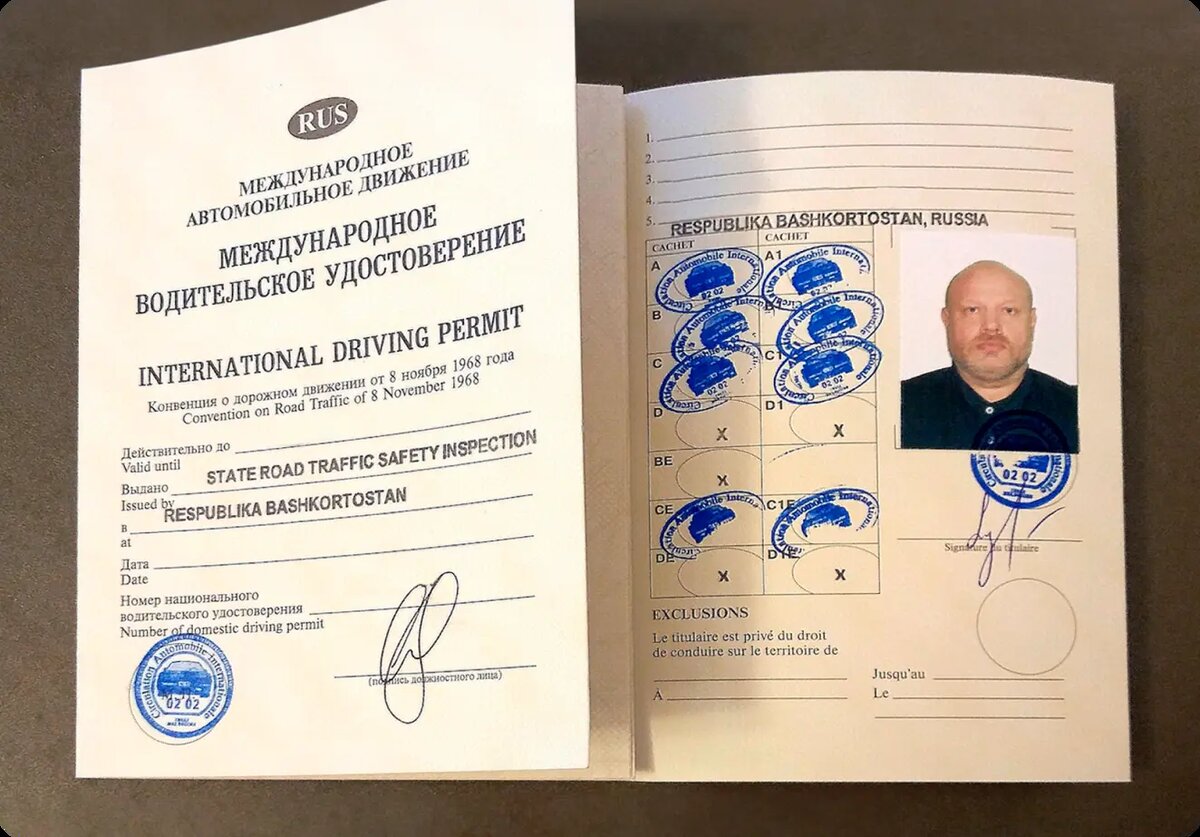 RUS
МЕЖДУНАРОДНОЕ
АВТОМОБИЛЬНОЕ ДВИЖЕНИЕ
МЕЖДУНАРОДНОЕ
ВОДИТЕЛЬСКОЕ УДОСТОВЕРЕНИЕ
INTERNATIONAL DRIVING PERMIT
Конвенция о дорожном движении от 8 ноября 1968 года
Convention on Road Traffic of 8 November 1968
Действительно до
Valid until
Выдано STATE ROAD TRAFFIC SAFETY INSPECTION
Issued by
RESPUBLIKA BASHKORTOSTAN
в
at
Дата
Date
Номер национального
водительского удостоверения
Number of domestic driving permit
(подпись должностного лица)
Circulation Automobile Internationale
М.П.
02 02
1.
2.
3.
4.
5. RESPUBLIKA BASHKORTOSTAN, RUSSIA
CACHET CACHET
A A1
Circulation Automobile Internat
02 02
B
02 02
C C1
02 02
D X D1 X
BE X
CE C1E
DE X D1E X
02 02
Signature du titulaire
EXCLUSIONS
Le titulaire est privé du droit
de conduire sur le territoire de
Jusqu'au
À Le